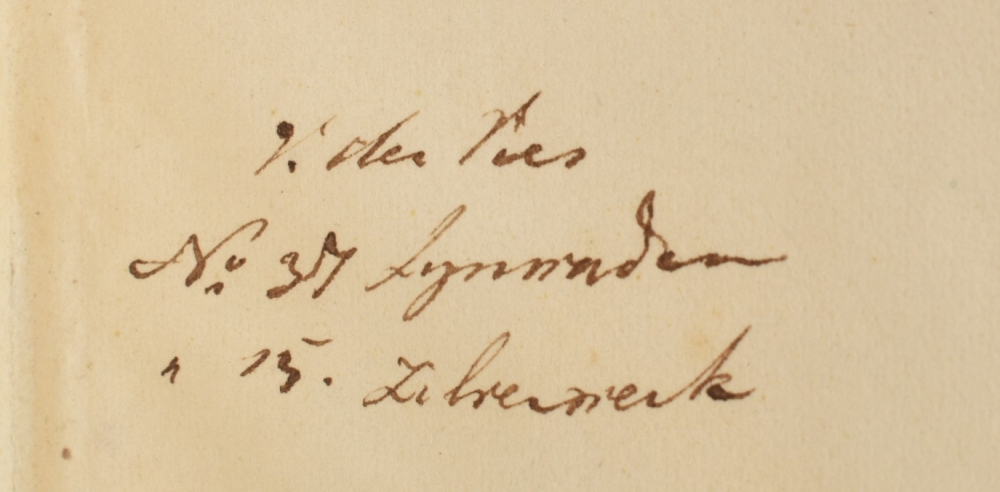 V. der Vies
No 37 Lynwaden
" 15. Zilverwerk